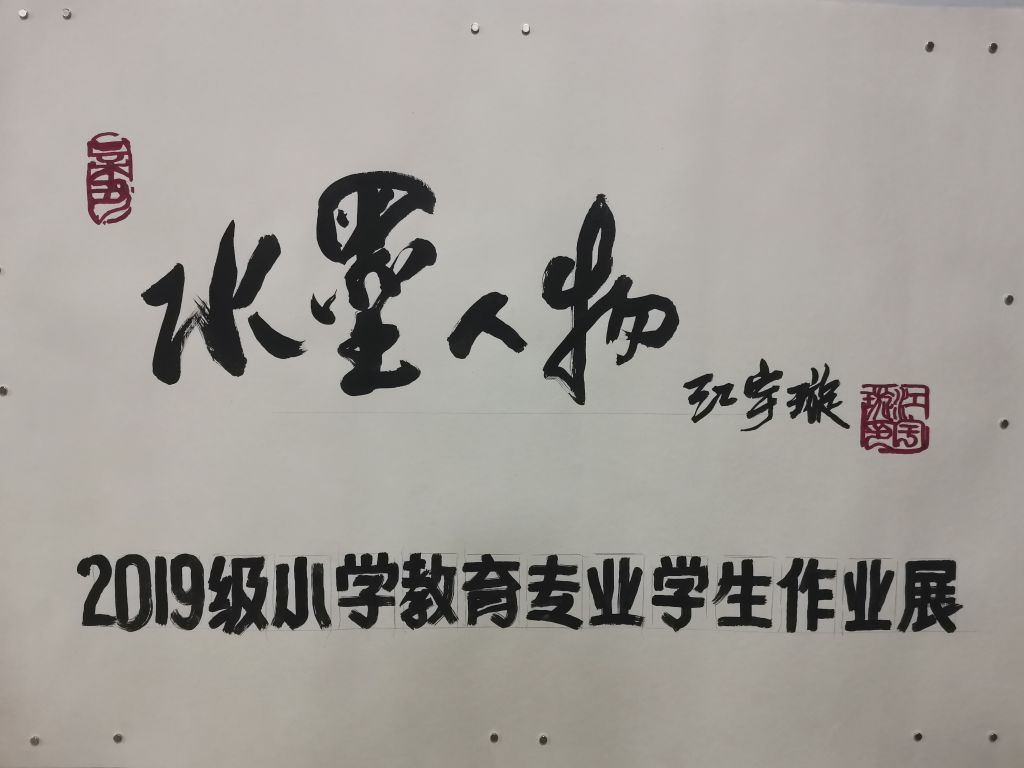 水墨人物
江宇璇
2019级小学教育专业学生作业展